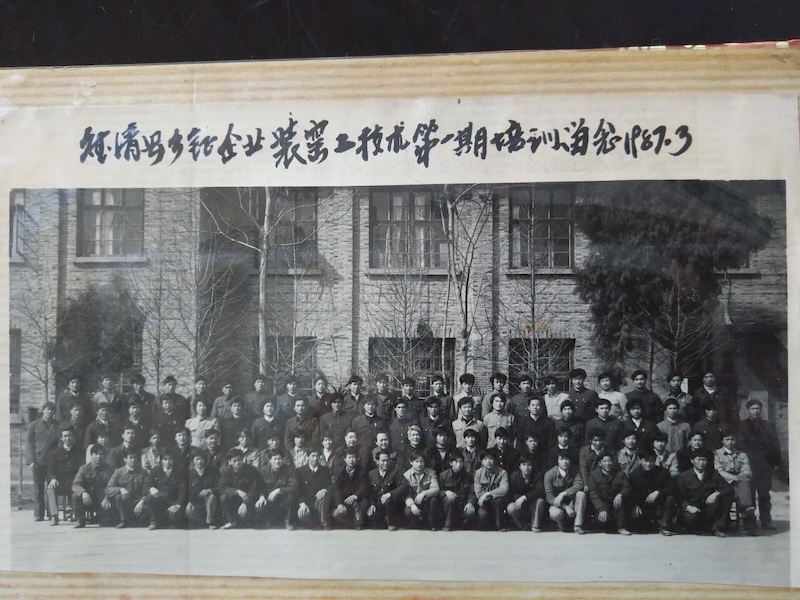 德清县乡镇企业装窑工技术第一期培训留念1987.3